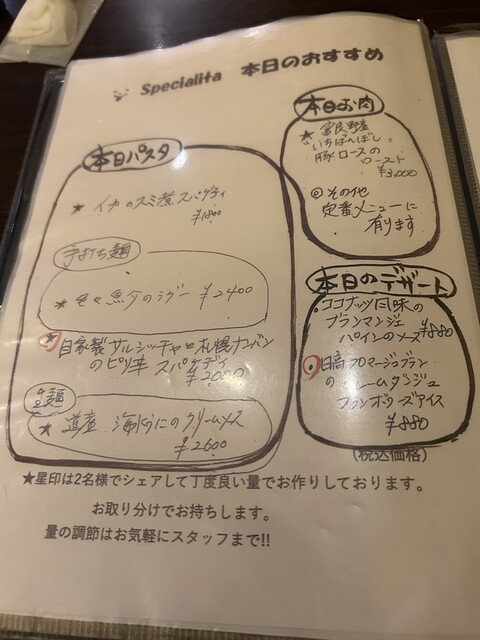 Specialita 本日のおすすめ
本日パスタ
★ イカのスミ煮スパゲティ
¥1800
手打ち麺
★ 色々魚介のラグー ¥2400
★ 自家製サルシッチャと札幌ナンバン
のピリ辛 スパゲティ
¥2000
生麺
★ 道産 海水うにのクリームソース
¥2600
本日お肉
★ 富良野産
いちばんぼし
豚ロースの
ロースト
¥3,000
◎ その他
定番メニューに
有ります
本日のデザート
・ココナッツ風味の
ブランマンジェ
パインのソース ¥880
・日高フロマージュブラン
の クレームダンジュ
フランボワーズアイス
¥880
(税込価格)
★星印は2名様でシェアして丁度良い量でお作りしております。
お取り分けでお持ちします。
量の調節はお気軽にスタッフまで!!